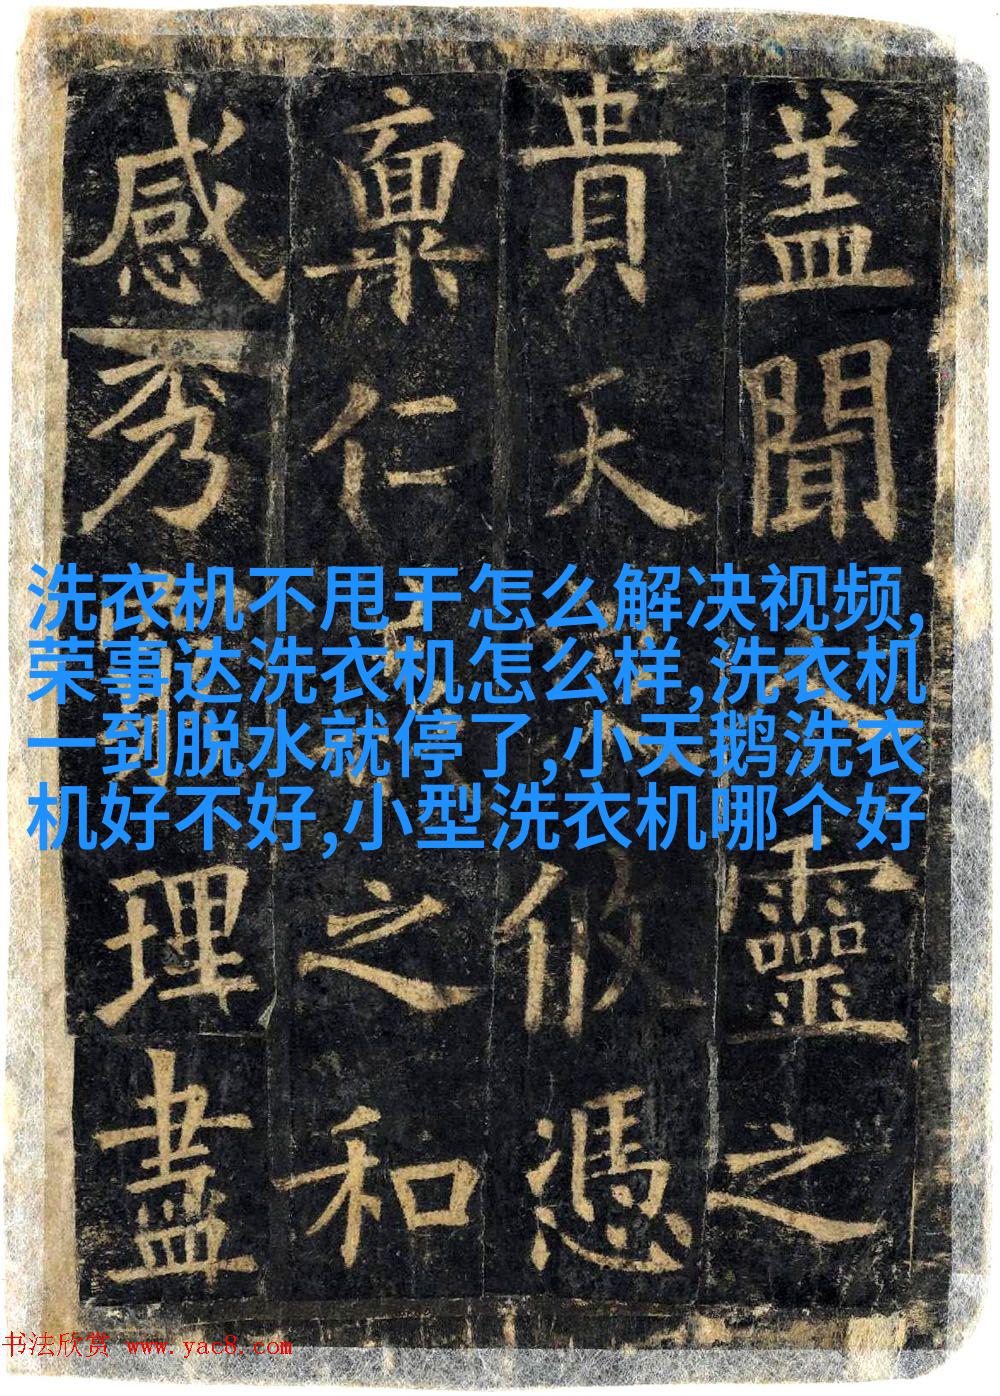 盖聞靈之
貴天攸憑
稟仁之和
感秀理盡
洗衣机不甩干怎么解决视频,
荣事达洗衣机怎么样,洗衣机
一到脱水就停了,小天鹅洗衣
机好不好,小型洗衣机哪个好
书法欣赏 www.yac8.com